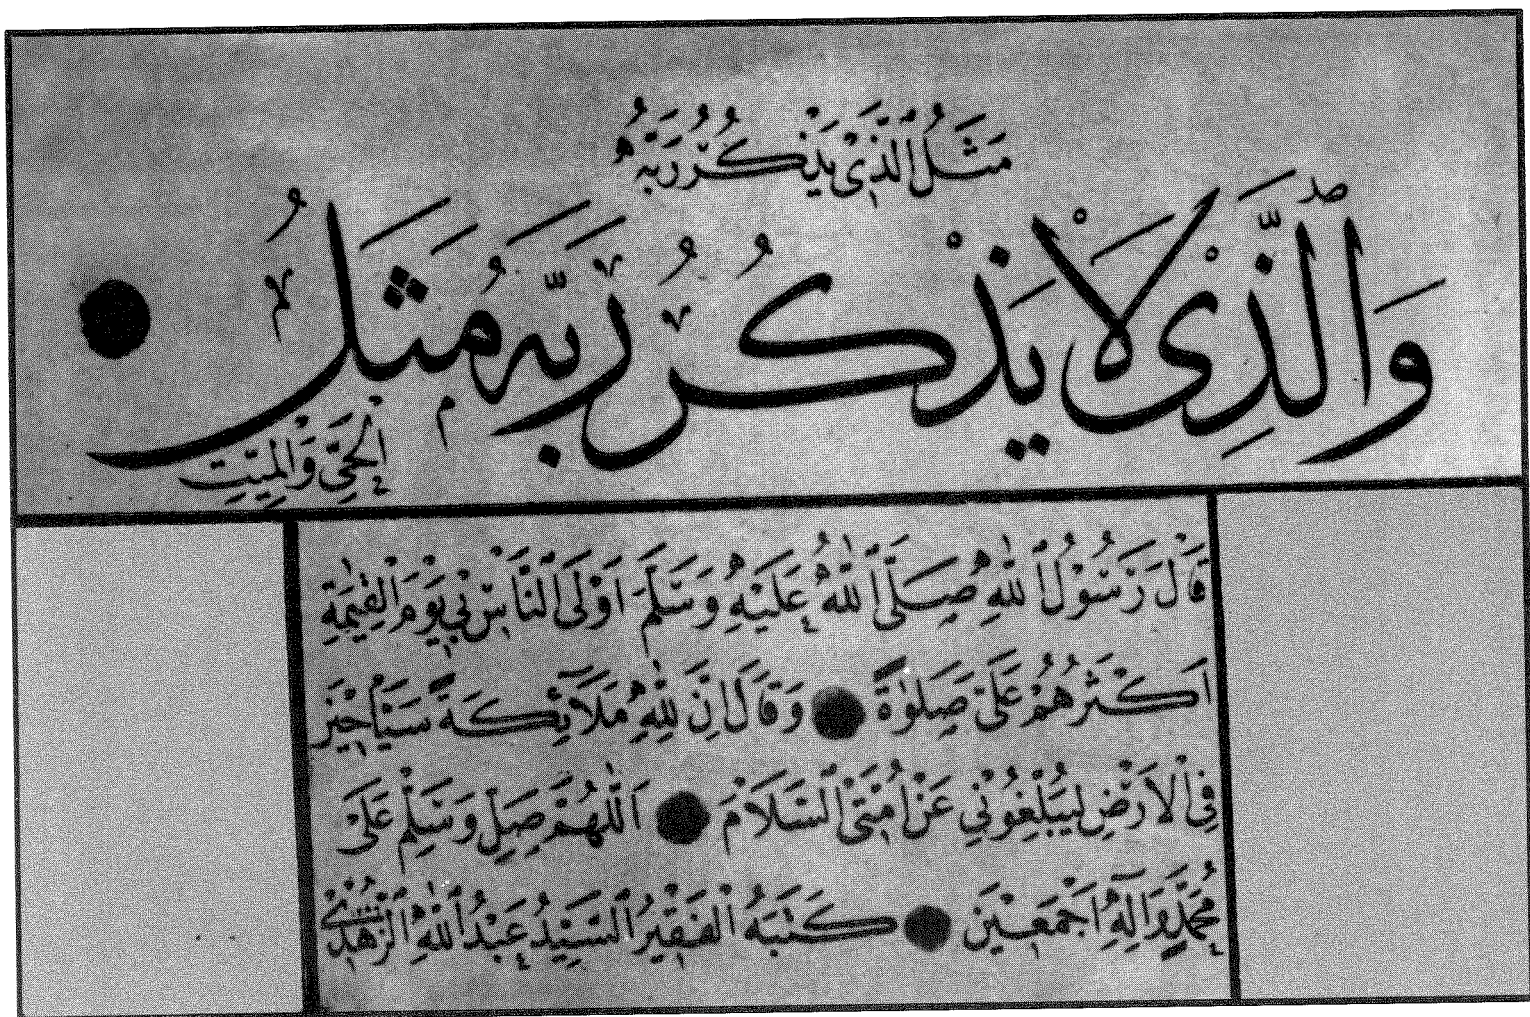 مَثَلُ الَّذِي يَذْكُرُ رَبَّهُ
وَالَّذِي لَا يَذْكُرُ رَبَّهُ مَثَلُ
الْحَيِّ وَالْمَيِّتِ
قَالَ رَسُولُ اللّٰهِ صَلَّى اللّٰهُ عَلَيْهِ وَسَلَّمَ اَوْلَى النَّاسِ بِي يَوْمَ الْقِيٰمَةِ
اَكْثَرُهُمْ عَلَيَّ صَلٰوةً وَقَالَ اِنَّ لِلّٰهِ مَلَآئِكَةً سَيَّاحِينَ
فِي الْاَرْضِ يُبَلِّغُونِي عَنْ اُمَّتِي السَّلَامَ اَللّٰهُمَّ صَلِّ وَسَلِّمْ عَلَى
مُحَمَّدٍ وَاٰلِهِ اَجْمَعِينَ كَتَبَهُ الْفَقِيرُ السَّيِّدُ عَبْدُ اللّٰهِ الزُّهْدِي